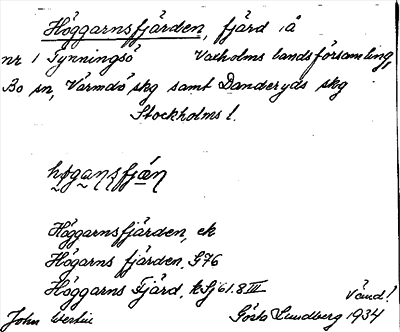 Höggarnsfjärden, fjärd i å
nr 1 Tynningsö Vaxholms landsförsamling,
Bo sn, Värmdö skg samt Danderyds skg
Stockholms l.
høgansfjän
Höggarnsfjärden, ek
Högarns fjärden, G76
Höggarns Fjärd, kSj 61.8.III
Vänd!
John Werlin Gösta Sundberg 1934